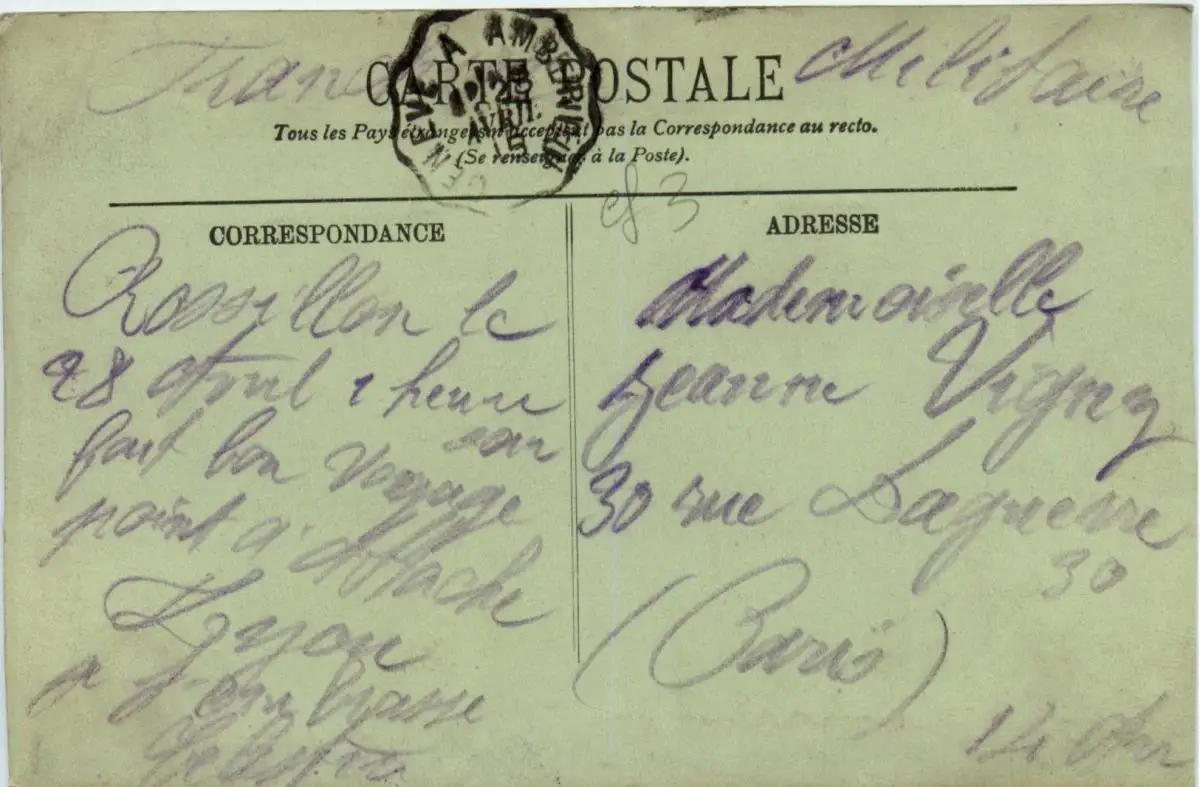 Franchise Militaire
CARTE POSTALE
Tous les Pays étrangers n'acceptent pas la Correspondance au recto.
(Se renseigner à la Poste).
GENEVE A AMBERIEU
28
AVRIL
15
3
CORRESPONDANCE
Rossillon le
28 Avril 1 heure
soir
fait bon voyage
point d'Attache
Lyon
je t'embrasse
ADRESSE
Mademoiselle
Jeanne Vigny
30 rue Daguerre
30
(Paris)
14 Arr